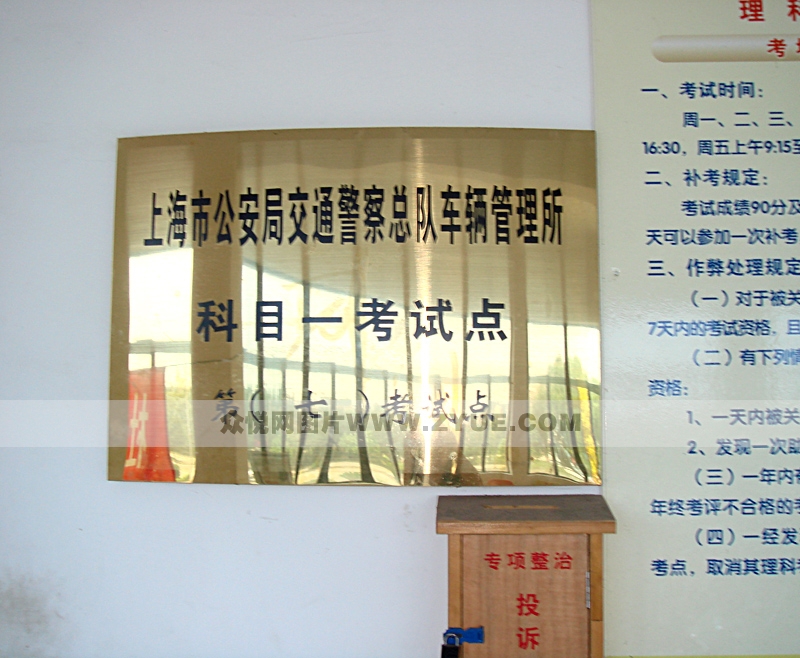 上海市公安局交通警察总队车辆管理所
科目一考试点
第( 七 )考试点
众悦网图片WWW.ZYUE.COM
专项整治
投
诉
理科
考
一、考试时间：
周一、二、三、
16:30，周五上午9:15至
二、补考规定：
考试成绩90分及
天可以参加一次补考
三、作弊处理规定
（一）对于被关
7天内的考试资格，且
（二）有下列情
资格：
1、一天内被关
2、发现一次助
（三）一年内有
年终考评不合格的考
（四）一经发
考点，取消其理科考